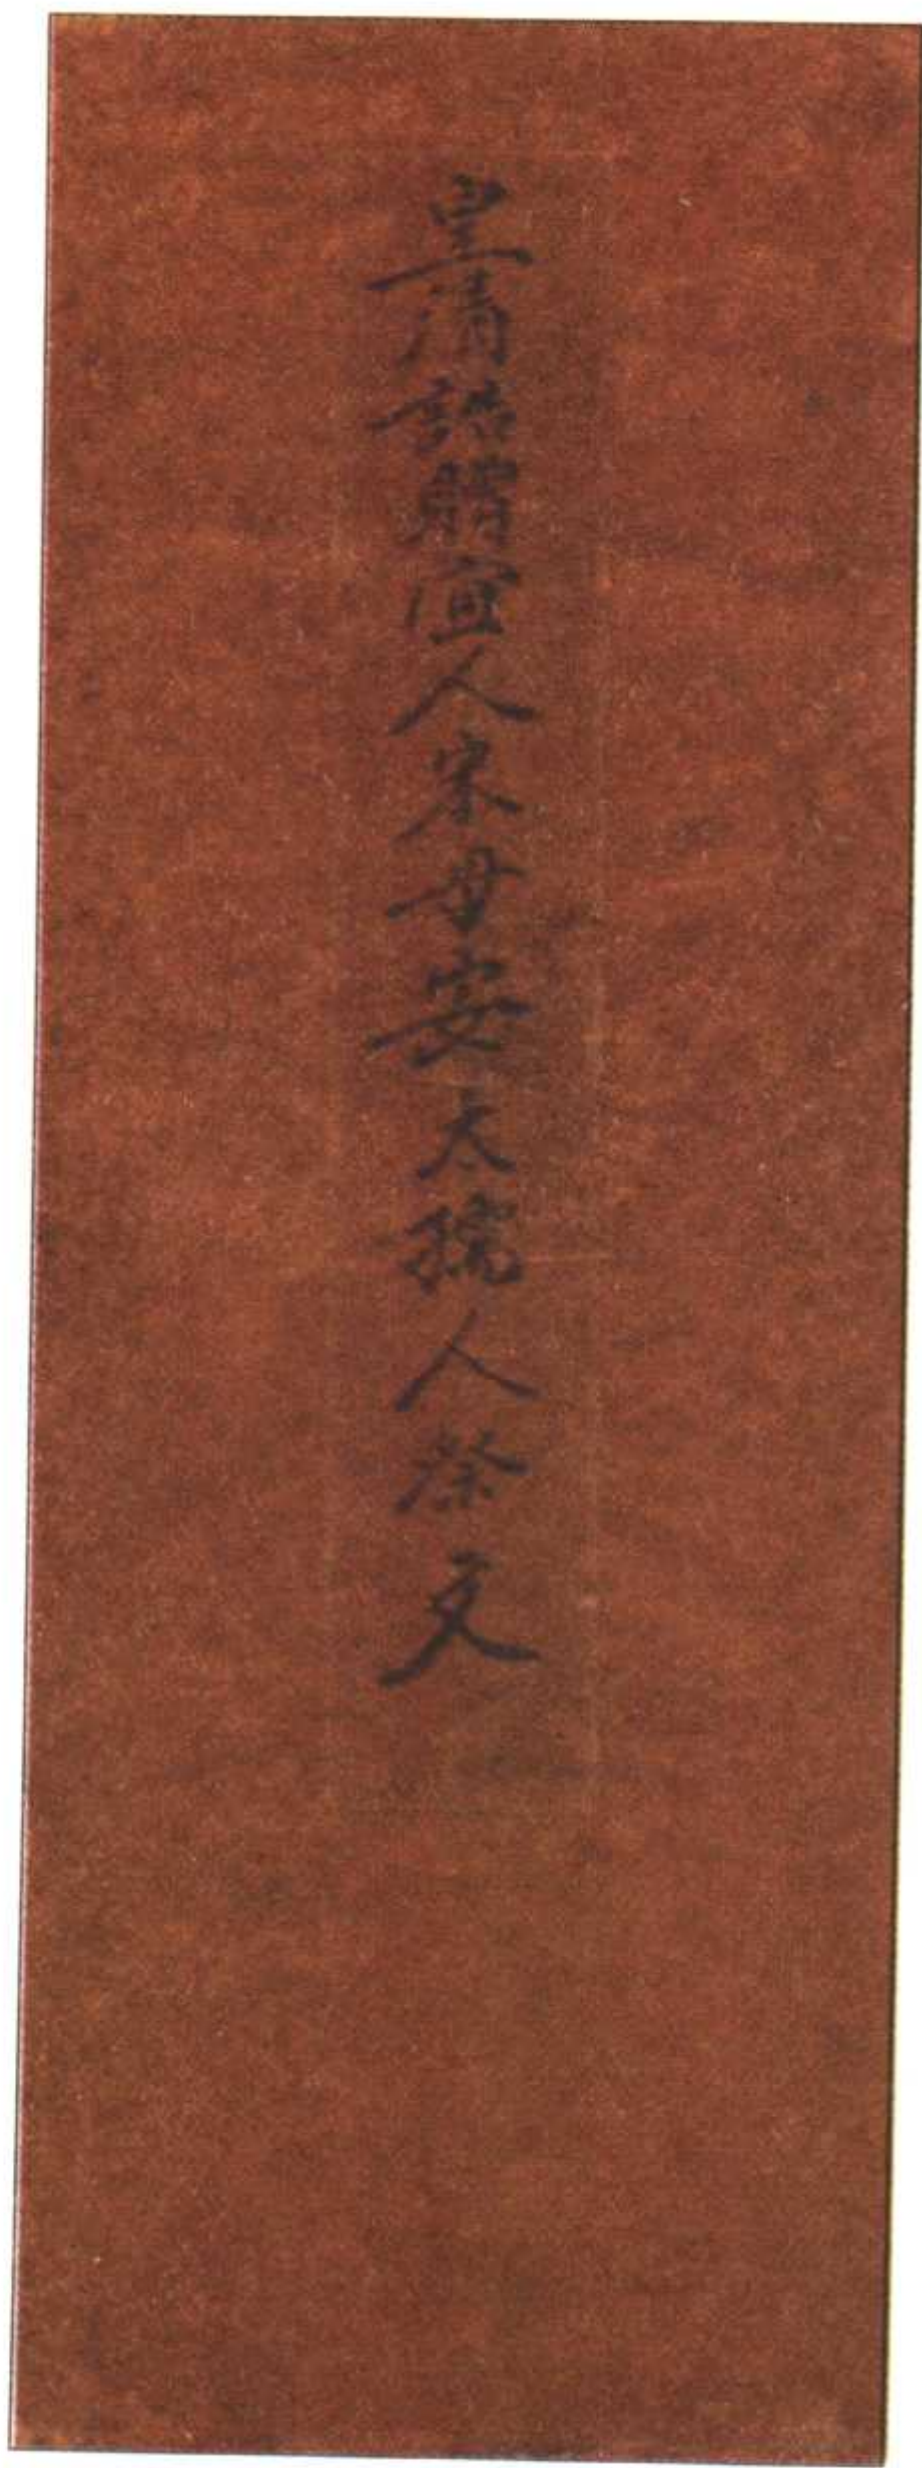 皇清誥贈宜人宋母安太孺人祭文